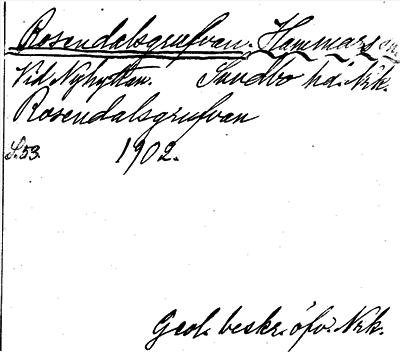 Rosendalsgrufvan. Hammars sn,
Vid Nyhyttan. Sundbo hd. Nrk.
Rosendalsgrufvan
S. 53. 1902.
Geol. beskr. öfv. Nrk.